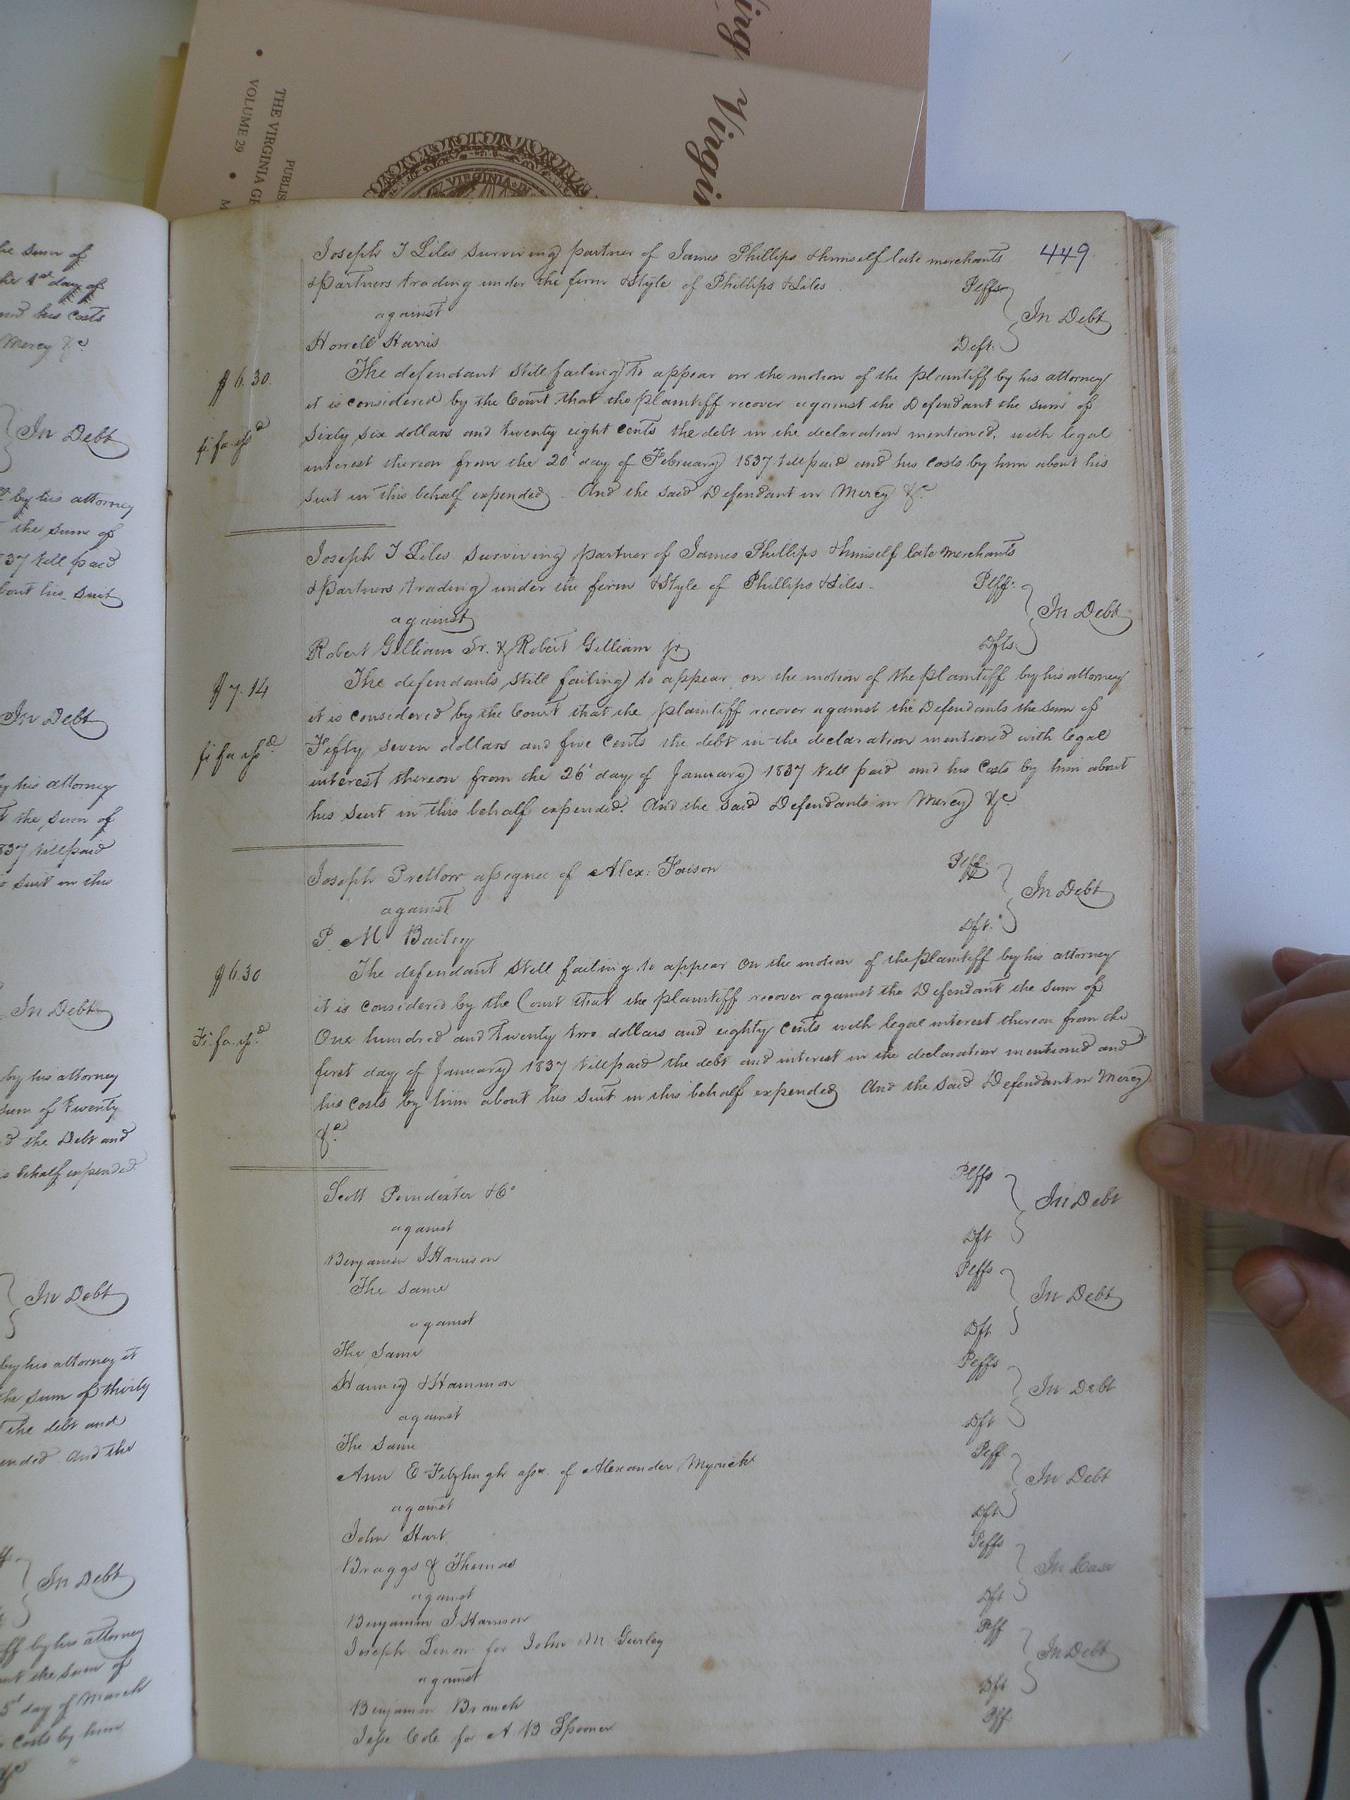 Virginia
VOLUME 29
THE VIRGINIA GE
PUBLIS
VIRGINIA
449
Joseph T Liles surviving partner of James Phillips & himself late merchants
& partners trading under the firm & Style of Phillips & Liles Plffs
against In Debt
Howell Harris Deft.
$6.30. The defendant still failing to appear on the motion of the plaintiff by his attorney
it is considered by the Court that the plaintiff recover against the Defendant the sum of
fi fa issd Sixty six dollars and twenty eight cents the debt in the declaration mentioned, with legal
interest thereon from the 20' day of February 1837 till paid and his costs by him about his
suit in this behalf expended. And the said Defendant in Mercy &c
Joseph T Liles surviving partner of James Phillips & himself late Merchants
& Partners trading under the firm & Style of Phillips & Liles. Plff.
against In Debt
Robert Gilliam Sr. & Robert Gilliam Jr Dfts
$7.14 The defendants still failing to appear on the motion of the plaintiff by his attorney
it is considered by the Court that the plaintiff recover against the Defendants the sum of
fi fa issd. Fifty seven dollars and five cents the debt in the declaration mentioned with legal
interest thereon from the 26' day of January 1837 till paid and his costs by him about
his suit in this behalf expended. And the said Defendants in Mercy &c
Joseph Pretlow assignee of Alex: Faison Plff.
against In Debt
P. M Bailey Dft.
$6.30 The defendant still failing to appear On the motion of the plaintiff by his attorney
it is considered by the Court that the plaintiff recover against the Defendant the sum of
Fi. fa. issd. One hundred and twenty two dollars and eighty cents with legal interest thereon from the
first day of January 1837 till paid the debt and interest in the declaration mentioned and
his costs by him about his suit in this behalf expended And the said Defendant in Mercy
&c.
Scott Poindexter & Co Plffs
against In Debt
Benjamin J Harrison Dft
The same Plffs
against In Debt
The Same Dft
Hanney & Hammon Plffs
against In Debt
The Same Dft
Ann E Fitzhugh asse. of Alexander Myrick Plff
against In Debt
John Hart Dft
Braggs & Thomas Plffs
against In Case
Benjamin J Harrison Dft
Joseph for John M Gurley Plff
against In Debt
Benjamin Branch Dft
Jesse Cole for A B Spooner Plff.
he sum of
he 1st day of
and his costs
Mercy &c
In Debt
by his attorney
the sum of
37 till paid
bout his suit
In Debt
y his attorney
the sum of
837 till paid
suit in this
In Debt
by his attorney
sum of twenty
d the Debt and
s behalf expended
In Debt
by his attorney it
he sum of thirty
the debt and
ended. And the
In Debt
ff by his attorney
nt the sum of
5t day of March
costs by him
&c